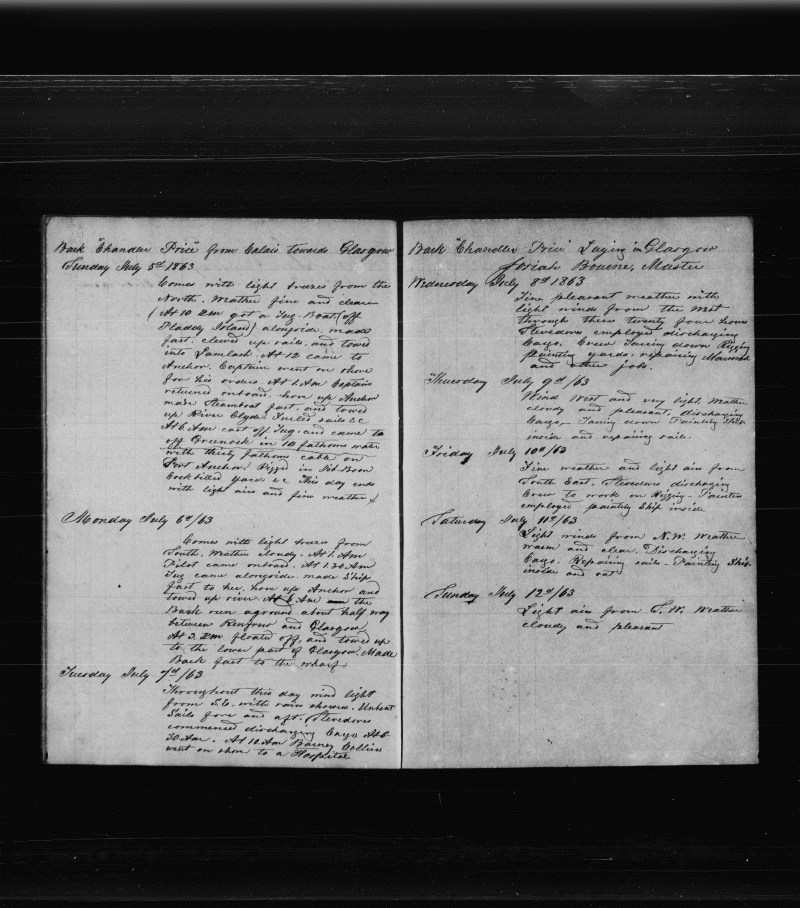 Bark "Chandler Price" from Calais towards Glasgow
Sunday July 5th 1863
Comes with light breezes from the
North. Weather fine and clear
(At 10 AM got a Tug-Boat (off
Pladdy Island) alongside, made
fast, clewed up sails, and towed
into Lamlash. At 12 came to
Anchor. Captain went on shore
for his orders. At 1. Am Captain
returned onboard. hove up Anchor
made Steamboat fast, and towed
up River Clyde. Furled sails &c
At 6 Am cast off Tug. and came to
off Greenock in 10 fathoms water
with thirty fathoms cable on
Port Anchor Rigged in Jib-Boom
Cockbilled Yards &c This day ends
with light airs and fine weather
Monday July 6th/63
Comes with light breezes from
South. Weather cloudy. At 1. Am
Pilot came onboard. At 1.30 Am
Tug came alongside. made Ship
fast to her, hove up Anchor and
towed up river. At 5 Am the
Bark run aground about half way
between Renfrew and Glasgow
At 3. PM floated off, and towed up
to the lower part of Glasgow. Made
Bark fast to the wharf
Tuesday July 7th/63
Throughout this day wind light
from S.E. with rain showers. Unbent
Sails fore and aft. Stevedores
commenced discharging Cargo At 6
30 Am. At 10 Am Barney Collins
went on shore to a Hospital
Bark "Chandler Price" Laying in Glasgow
Josiah Bourne, Master
Wednesday July 8th 1863
Fine pleasant weather with
light winds from the West
through these twenty four hours
Stevedores employed discharging
Cargo. Crew Taring down Rigging
painting yards, repairing Mainsail
and other jobs.
Thursday July 9th/63
Wind West and very light. Weather
cloudy and pleasant, discharging
Cargo, Taring down Painting Ship
inside and repairing sails.
Friday July 10th/63
Fine weather and light airs from
South East. Stevedores discharging
Crew to work on Rigging - Painter
employed painting Ship inside
Saturday July 11th/63
Light winds from N.W. Weather
warm and clear. Discharging
Cargo. Repairing sails - Painting Ship
inside and out
Sunday July 12th/63
Light airs from S.W. Weather
cloudy and pleasant